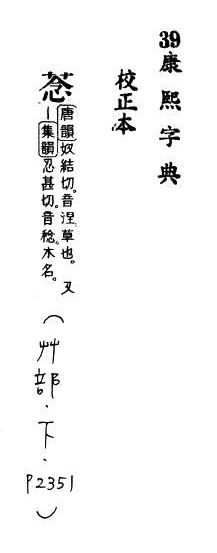 39康熙字典
校正本
菍
唐韻奴結切。音涅。草也。又
｜集韻忍甚切。音稔。木名。
（艸部．下．P2351）